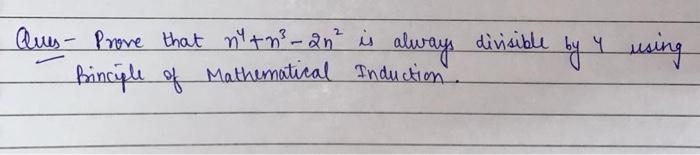 Ques - Prove that n⁴+n³-2n² is always divisible by 4 using
Principle of Mathematical Induction.